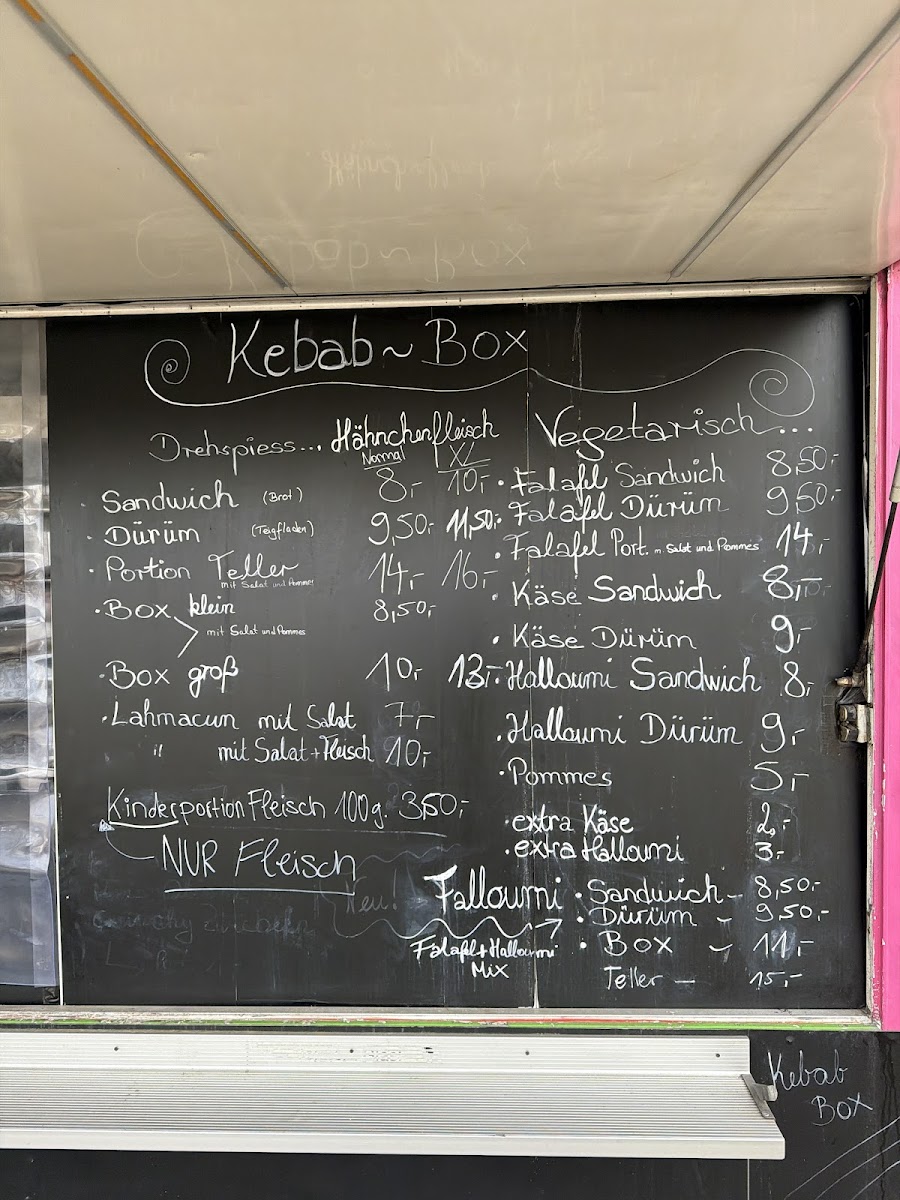 Kebab~Box
Drehspiess... Hähnchenfleisch
Normal XL
Sandwich (Brot) 8,- 10,-
Dürüm (Teigfladen) 9,50,- 11,50,-
Portion Teller 14,- 16,-
mit Salat und Pommes
Box klein 8,50,-
mit Salat und Pommes
Box groß 10,- 13,-
Lahmacun mit Salat 7,-
" mit Salat+Fleisch 10,-
Kinderportion Fleisch 100g. 3,50,-
NUR Fleisch
Vegetarisch...
Falafel Sandwich 8,50,-
Falafel Dürüm 9,50,-
Falafel Port. m. Salat und Pommes 14,-
Käse Sandwich 8,-
Käse Dürüm 9,-
Halloumi Sandwich 8,-
Halloumi Dürüm 9,-
Pommes 5,-
extra Käse 2,-
extra Halloumi 3,-
Neu! Falloumi
Falafel+Halloumi
Mix
Sandwich - 8,50,-
Dürüm - 9,50,-
Box - 11,-
Teller - 15,-
Kebab
Box